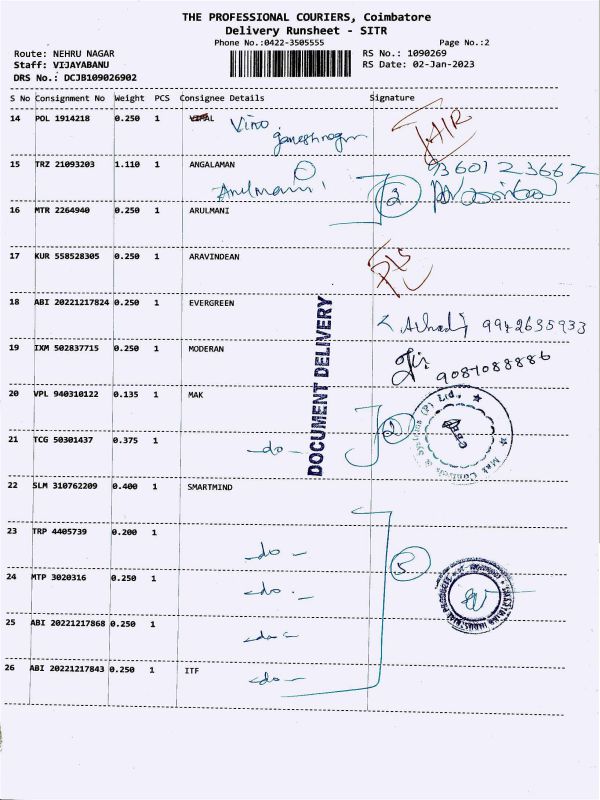 THE PROFESSIONAL COURIERS, Coimbatore
Delivery Runsheet - SITR
Phone No.:0422-3505555 Page No.:2
Route: NEHRU NAGAR RS No.: 1090269
Staff: VIJAYABANU RS Date: 02-Jan-2023
DRS No.: DCJB109026902
S No Consignment No Weight PCS Consignee Details Signature
14 POL 1914218 0.250 1 Vino
ganeshnagar
15 TRZ 21093203 1.110 1 ANGALAMAN 9360123667
Arulmani 2
16 MTR 2264940 0.250 1 ARULMANI
17 KUR 558528305 0.250 1 ARAVINDEAN
18 ABI 20221217824 0.250 1 EVERGREEN
9942635933
19 IXM 502837715 0.250 1 MODERAN
9087088886
DOCUMENT DELIVERY
20 VPL 940310122 0.135 1 MAK
2
21 TCG 50301437 0.375 1 -do-
22 SLM 310762209 0.400 1 SMARTMIND
23 TRP 4405739 0.200 1 -do-
5
24 MTP 3020316 0.250 1 -do-
25 ABI 20221217868 0.250 1 -do-
26 ABI 20221217843 0.250 1 ITF -do-